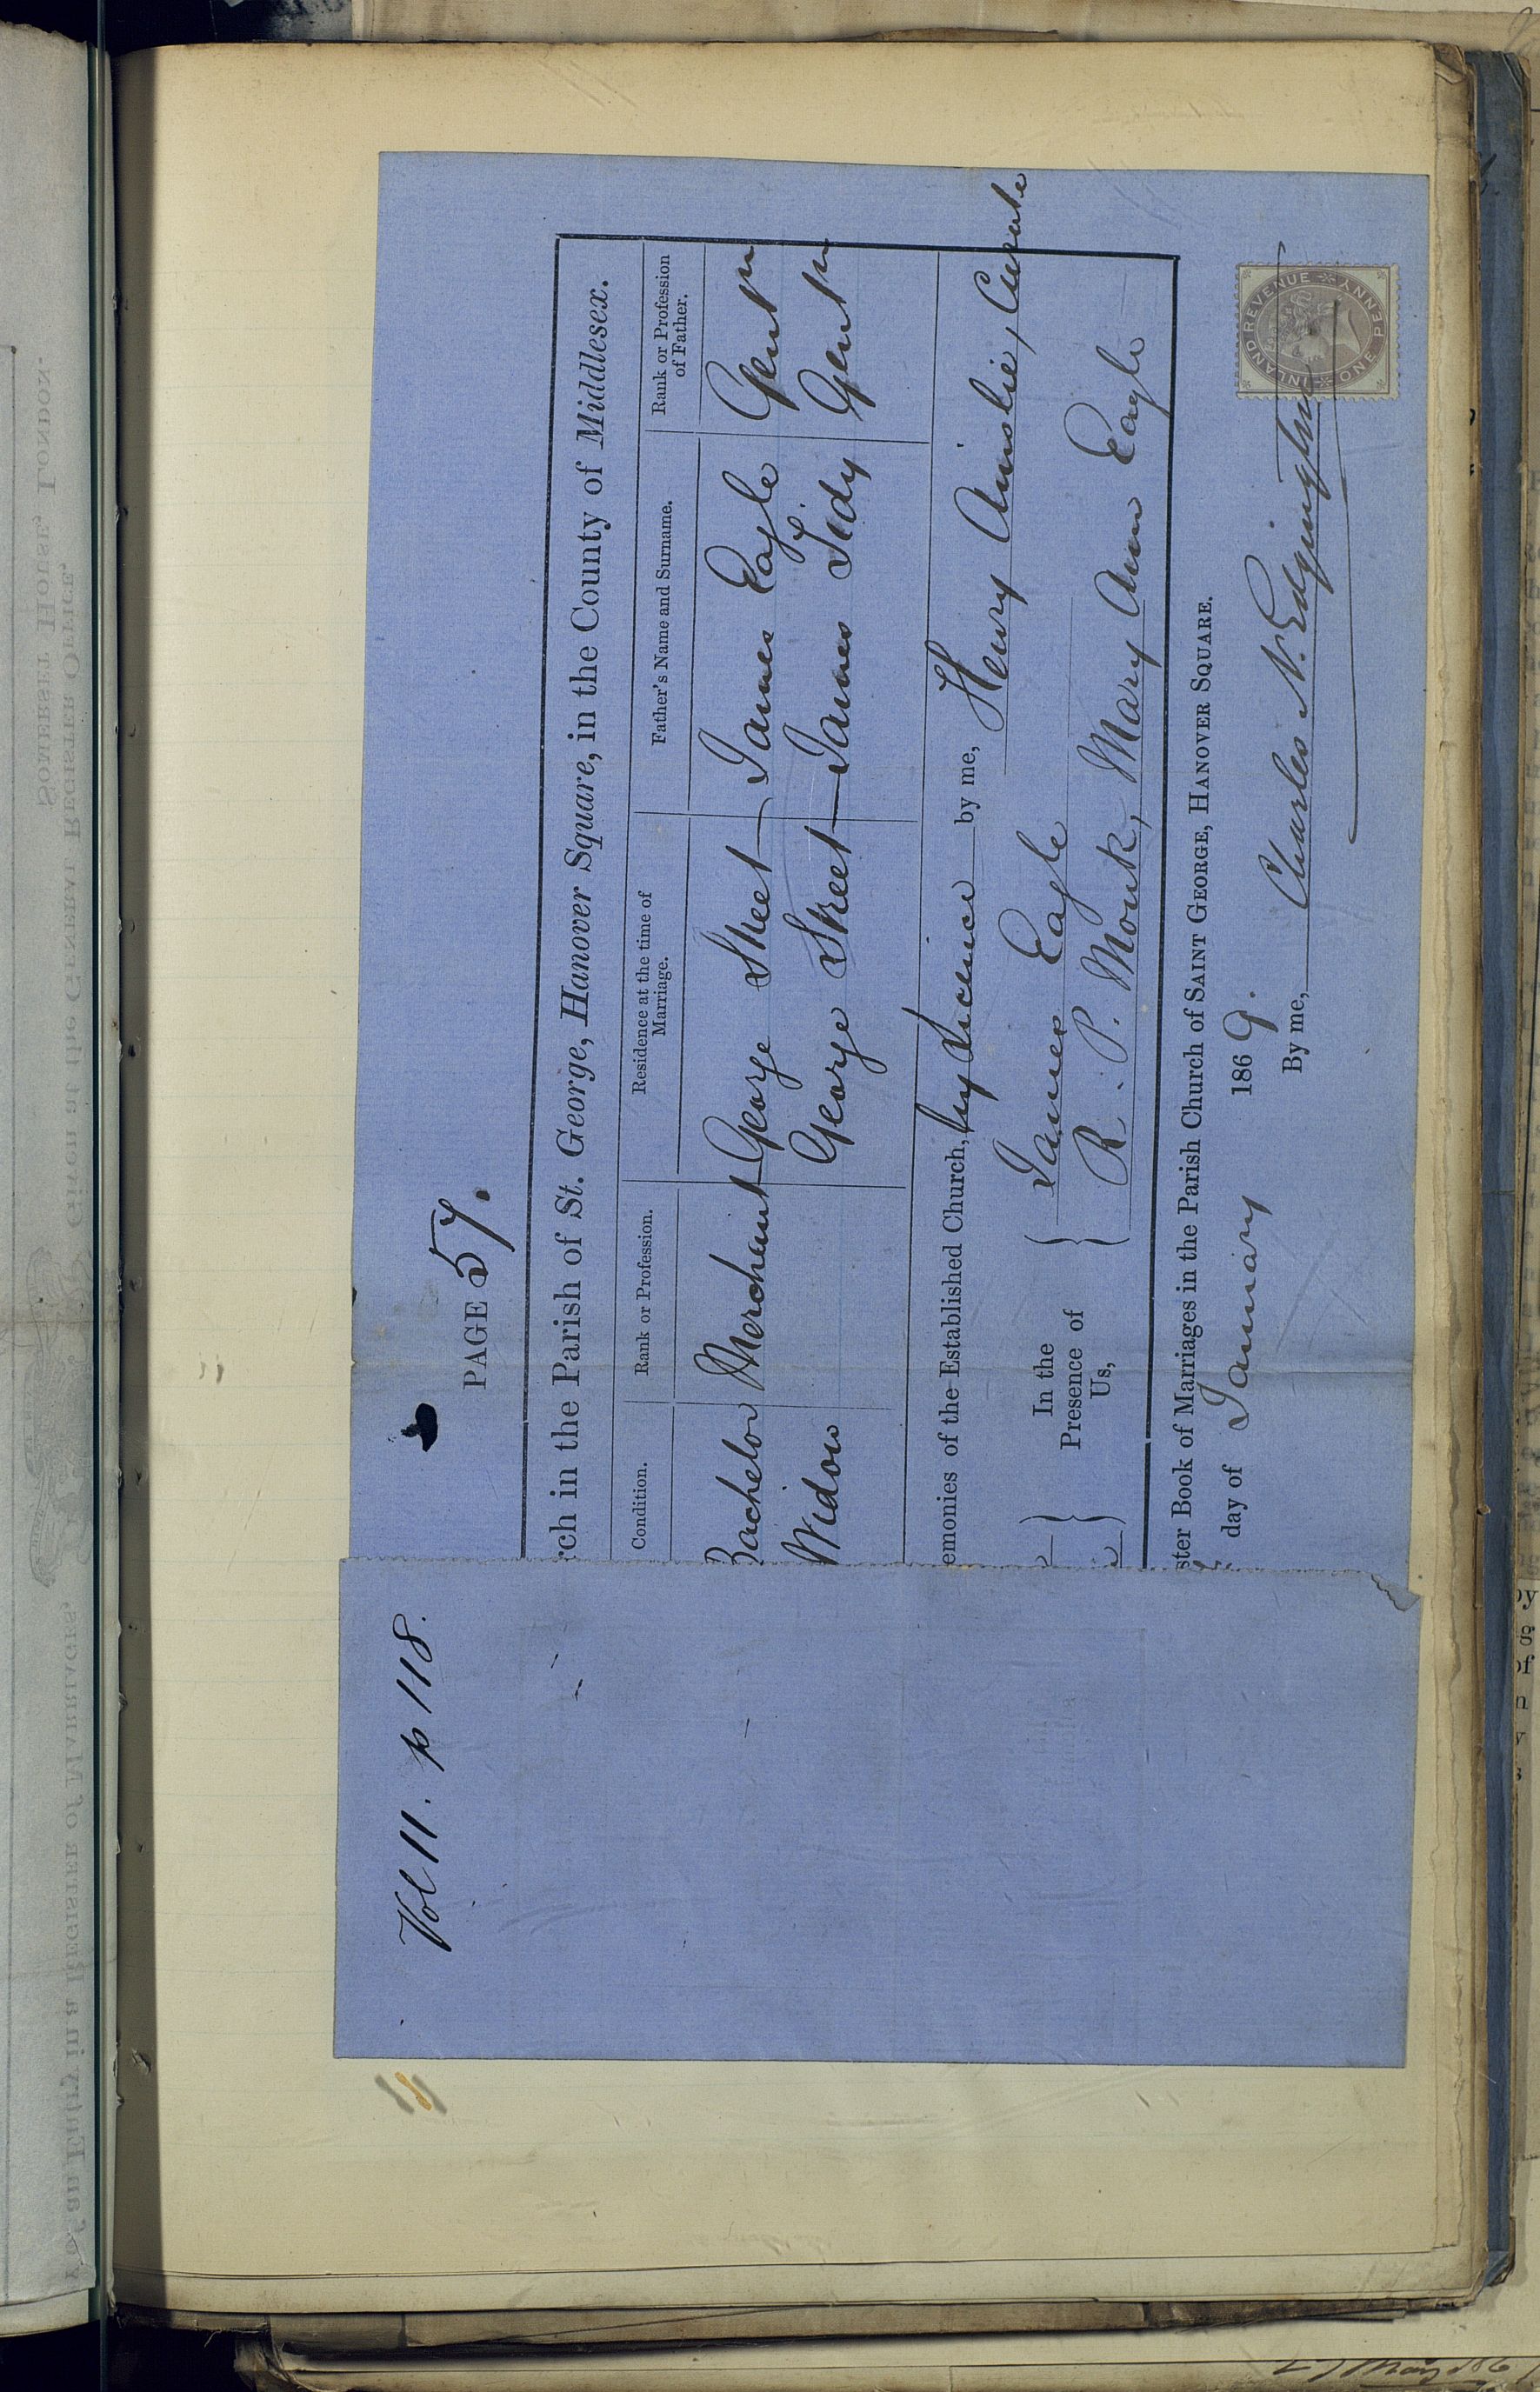 Vol 11. p 118.
PAGE 57.
rch in the Parish of St. George, Hanover Square, in the County of Middlesex.
Condition. Rank or Profession. Residence at the time of Marriage. Father's Name and Surname. Rank or Profession of Father.
Bachelor Merchant George Street James Eagle Gent n
Widow George Street James J. Tidy Gent n
emonies of the Established Church, by Licence by me, Henry Ainslie, Curate
In the Presence of Us,
James Eagle
R. P. Monk, Mary Ann Eagle
ster Book of Marriages in the Parish Church of SAINT GEORGE, HANOVER SQUARE.
day of January 1869.
By me, Charles N. Edgington
INLAND REVENUE ONE PENNY
of an Entry in a REGISTER of MARRIAGES,
Given at the GENERAL REGISTER OFFICE,
SOMERSET HOUSE, LONDON.